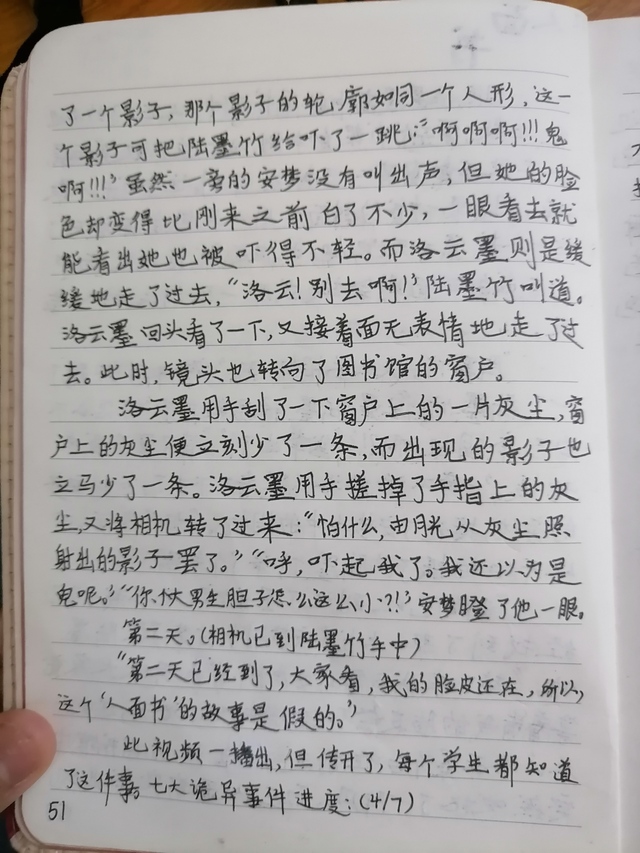 了一个影子，那个影子的轮廓如同一个人形，这一
个影子可把陆墨竹给吓了一跳："啊啊啊!!!鬼
啊!!!"虽然一旁的安梦没有叫出声，但她的脸
色却变得比刚来之前白了不少，一眼看去就
能看出她也被吓得不轻。而洛云墨则是缓
缓地走了过去，"洛云!别去啊!"陆墨竹叫道。
洛云墨回头看了一下，又接着面无表情地走了过
去。此时，镜头也转向了图书馆的窗户。
洛云墨用手刮了一下窗户上的一片灰尘，窗
户上的灰尘便立刻少了一条，而出现的影子也
立马少了一条。洛云墨用手搓掉了手指上的灰
尘，又将相机转了过来："怕什么，由月光从灰尘照
射出的影子罢了。""呼，吓起我了。我还以为是
鬼呢。""你个大男生胆子怎么这么小?!"安梦瞪了他一眼。
第二天。(相机已到陆墨竹手中)
"第二天已经到了，大家看，我的脸皮还在，所以，
这个'人面书'的故事是假的。"
此视频一播出，但传开了，每个学生都知道
了这件事。七大诡异事件进度：(4/7)
51